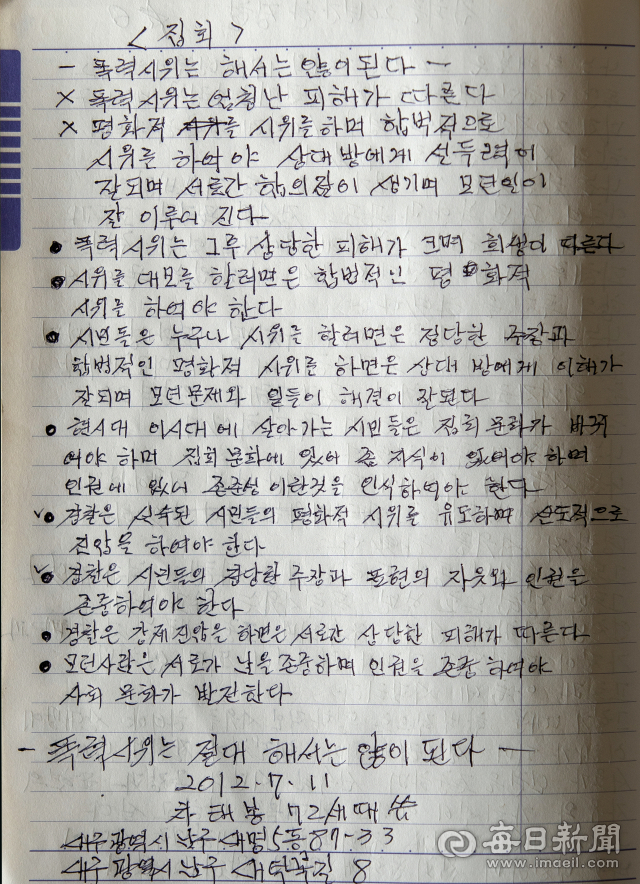 < 집회 >
- 폭력시위는 해서는 않이된다 -
× 폭력시위는 엄청난 피해가 따른다
× 평화적 시위를 하며 합법적으로
시위를 하여야 상대방에게 설득력이
잘되며 서로간 합의점이 생기며 모던일이
잘 이루어 진다
● 폭력시위는 그후 상당한 피해가 크며 희생이 따른다
● 시위를 대모를 할려면은 합법적인 평화적
시위를 하여야 한다
● 시민들은 누구나 시위를 할려면은 정당한 주장과
합법적인 평화적 시위를 하면은 상대방에게 이해가
잘되며 모던문제와 일들이 해결이 잘된다
● 현시대 이시대에 살아가는 시민들은 집회문화가 바뀌
어야 하며 집회문화에 있어 좀 지식이 있어야 하며
인권에 있어 존준성이란것을 인식하여야 한다
● 경찰은 시민들의 평화적 시위를 유도하며
진압을 하여야 한다
● 경찰은 시민들의 정당한 주장과 표현의 자유와 인권은
존중하여야 한다
● 경찰은 강제진압은 하면은 서로간 상당한 피해가 따른다
● 모던사람은 서로가 남을존중하며 인권을 존중 하여야
사회 문화가 발전한다
- 폭력시위는 절대 해서는 않이 된다 -
2012.7.11
차태봉 72세때
대구광역시 남구 대명5동 87-33
대구광역시 남구 8
每日新聞
www.imaeil.com